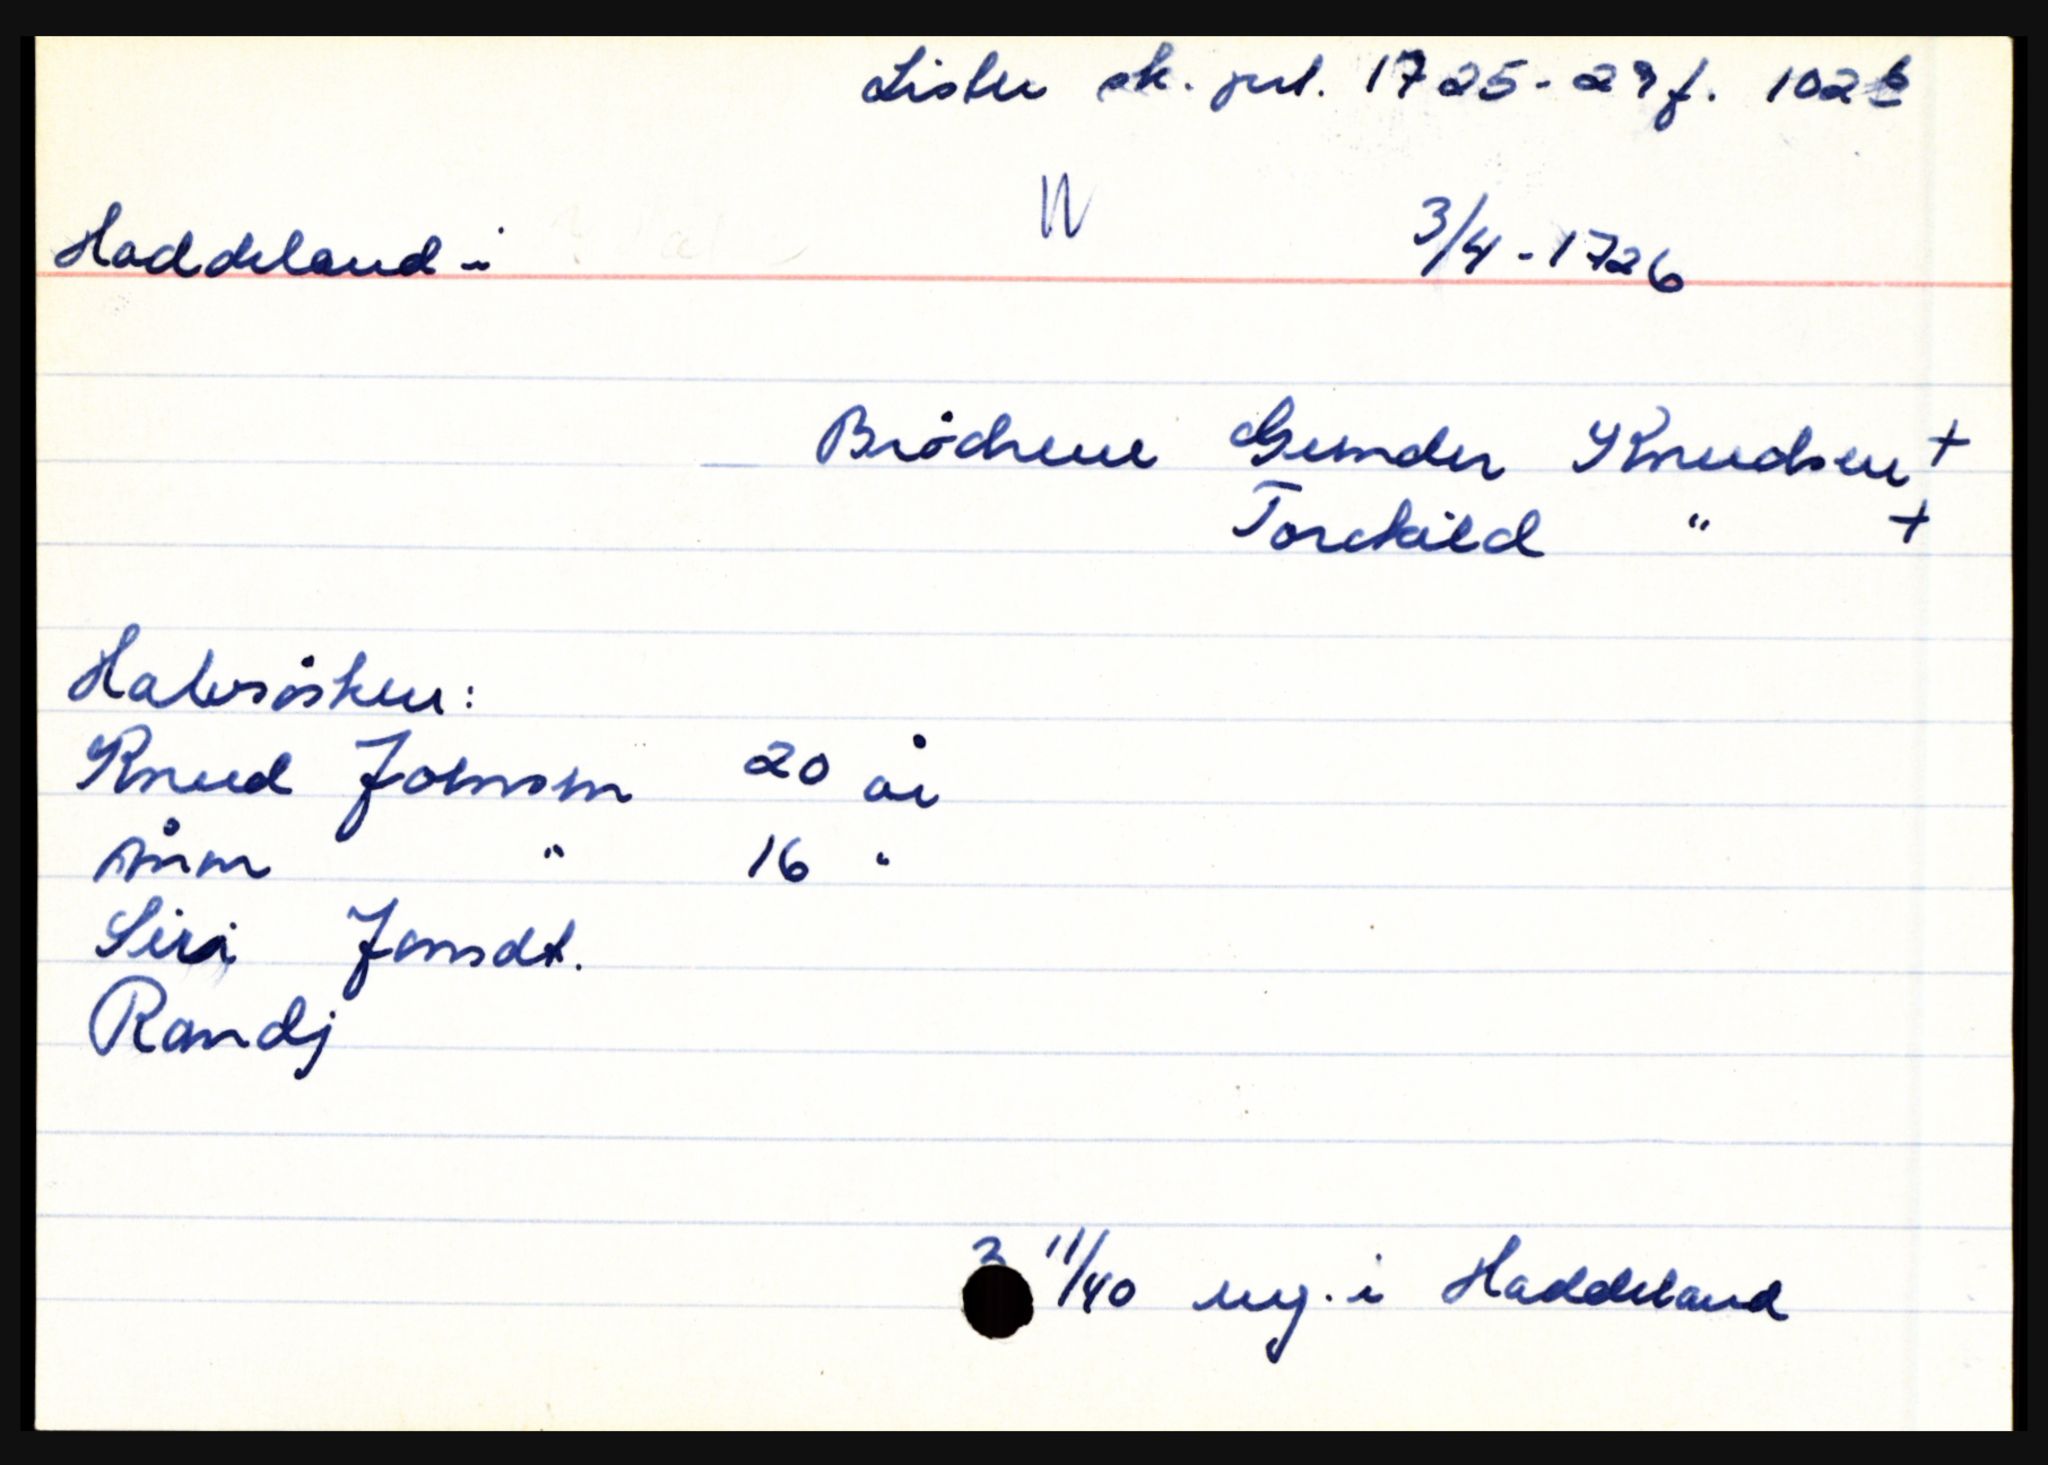 Lister sk. prt. 1725-29 f. 102 b
N
Haddeland i
3/4-1726
Brödrene Gunder Knudsen +
Torckild " +
Halvsösken:
Knud Johnsen 20 år
" 16 "
Siri Jonsdt.
Randj
3 11/40 eng. i Haddeland